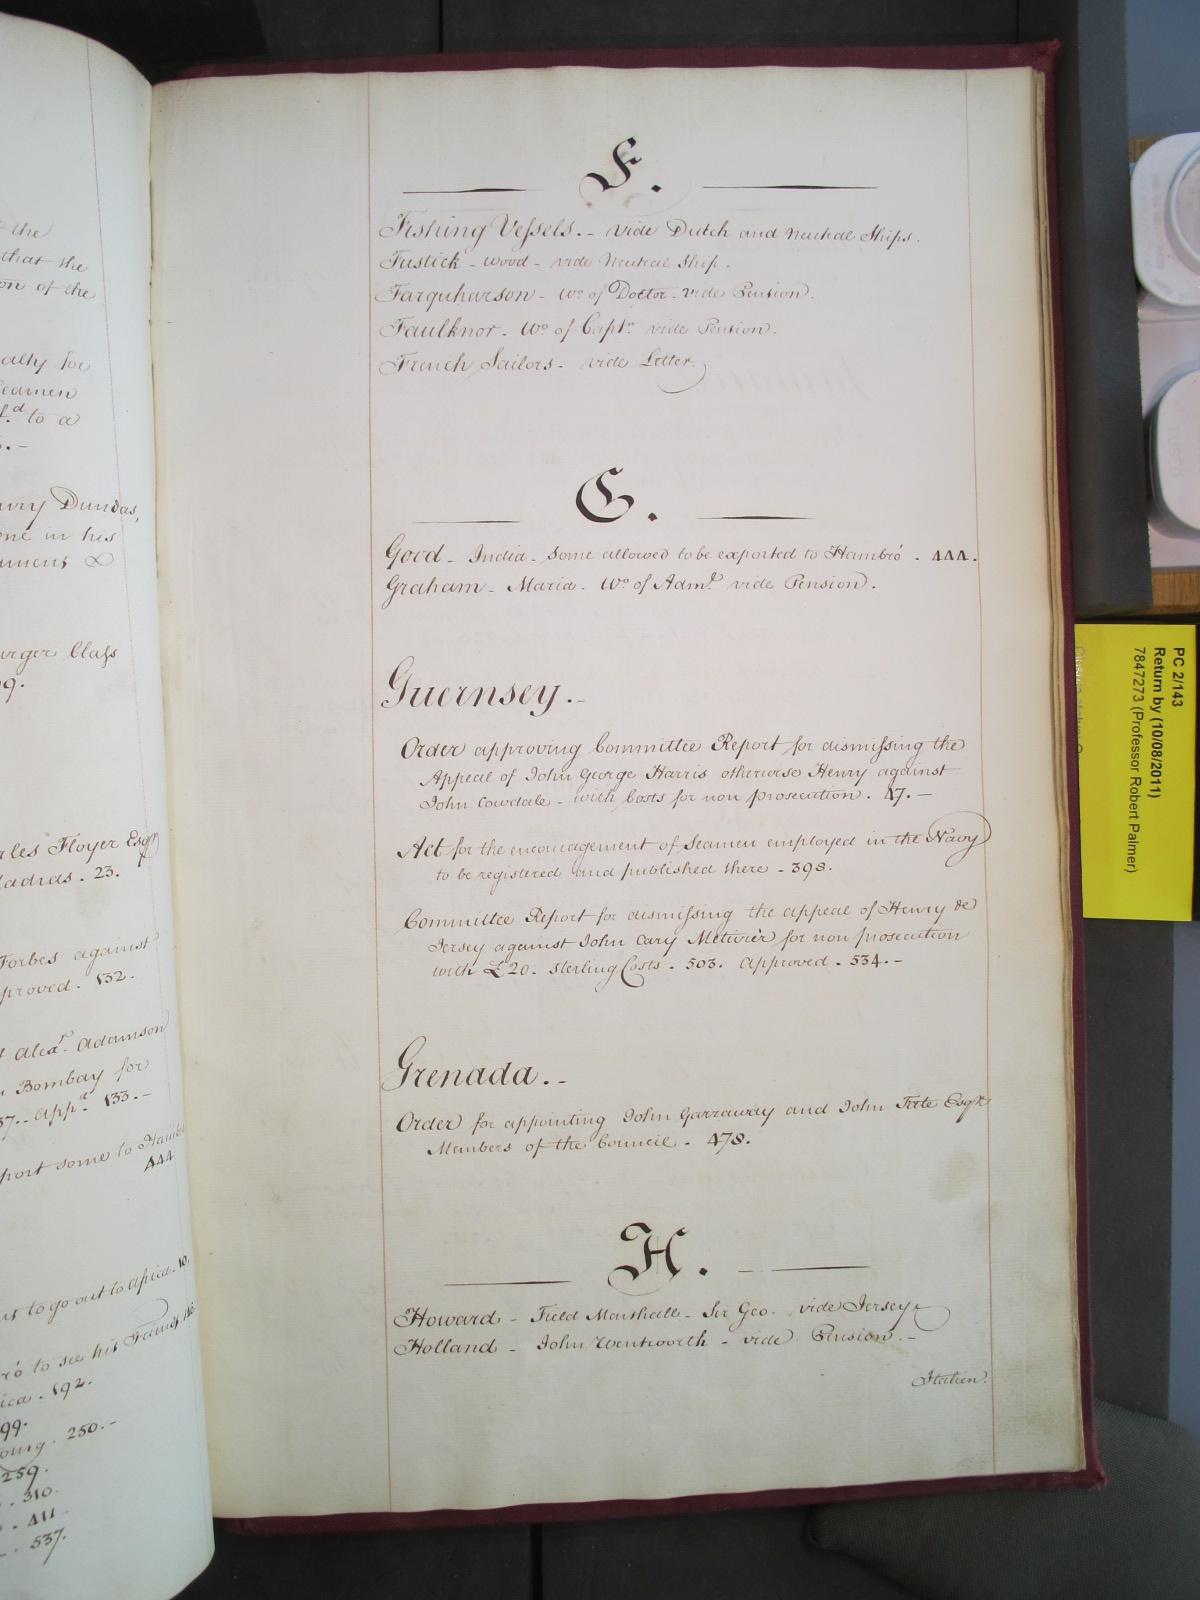 the
that the
on of the
alty for
eamen
d to a
Dundas,
one in his
uments &
arger Class
9.
rles Floyer Esqr
Madras. 23.
Forbes against
proved. 132.
Alexr. Adamson
Bombay for
37.- appd. 133.-
port some to Hambro
444
to go out to Africa. 10.
ro to see his Family. 116.
ica. 192.
99.
oung. 250.-
259.
. 310.
. 411.
. 537.
F.
Fishing Vessels. - vide Dutch and Neutral Ships.
Fustick - wood - vide Neutral Ship.
Farquharson - Wo. of Doctor - vide Pension.
Faulknor - Wo. of Captn. vide Pension.
French Sailors - vide Letter.
G.
Good - India - some allowed to be exported to Hambro' . 444.
Graham - Maria - Wo. of Adml. vide Pension.
Guernsey.-
Order approving Committee Report for dismissing the
Appeal of John George Harris otherwise Henry against
John Cowdale - with Costs for non prosecution . 47.-
Act for the encouragement of Seamen employed in the Navy
to be registered and published there - 398.
Committee Report for dismissing the appeal of Henry de
Jersey against John Cary Metivier for non prosecution
with £20. sterling Costs . 503. approved . 534.-
Grenada.-
Order for appointing John Garraway and John Tate Esqrs
Members of the Council . 478.
H.
Howard - Field Marshall - Sir Geo. vide Jersey
Holland - John Wentworth - vide Pension.-
Italien.
PC 2/143
Return by (10/08/2011)
7847273 (Professor Robert Palmer)